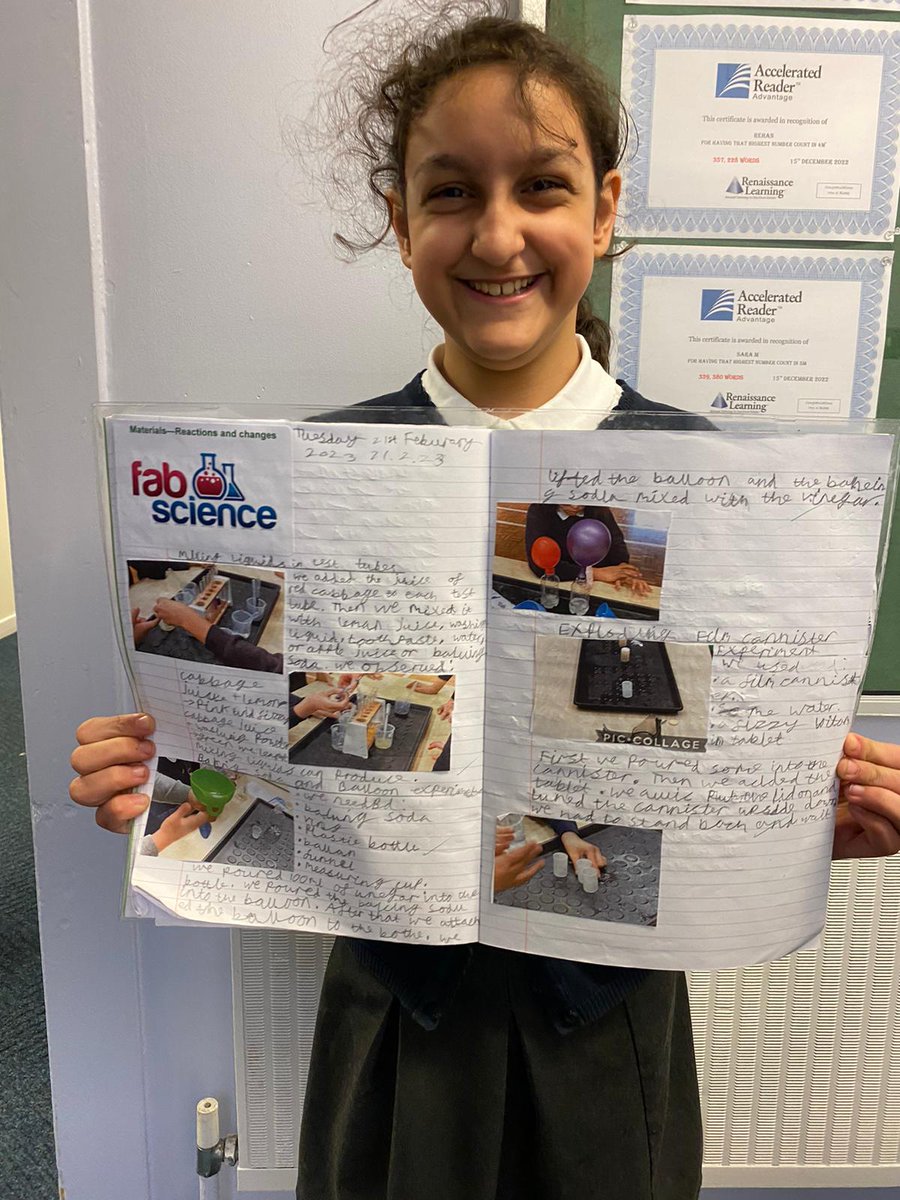 Accelerated
Reader™
Advantage
This certificate is awarded in recognition of
REHAN
FOR HAVING THAT HIGHEST NUMBER COUNT IN 4M
357, 228 WORDS
15TH DECEMBER 2022
Renaissance
Learning
Accelerated
Reader™
Advantage
This certificate is awarded in recognition of
SARA M
FOR HAVING THAT HIGHEST NUMBER COUNT IN 5M
339, 380 WORDS
15TH DECEMBER 2022
Renaissance
Learning
Materials—Reactions and changes
fab
science
Tuesday 21st Feburary
2023 21.2.23
Mixing Liquids in test tubes
we added the juice of
red cabbage to each test
tube. Then we mixed it
with lemon juice, washing
liquid, toothpaste, water,
or apple juice or baking
soda. we observed:
cabbage
juice + lemon
→ Pink and fizzy
cabbage juice
mixing liquids can produce.
and Balloon experiment
we needed:
• baking soda
• plastic bottle
• ballon
• funnel
• measuring cup.
we poured 100ml of vinegar into the
bottle. we poured the baking soda
into the balloon. After that we attach
ed the balloon to the bottle. we
lifted the balloon and the bakein
g soda mixed with the vinegar.
Exploding Film cannister
Experiment
we used:
• a film cannist
er
• some water.
• a fizzy vitam
in tablet
PIC•COLLAGE
First we poured some into the
cannister. Then we added the
tablet. we quick lid on and
turned the cannister upside down
we had to stand back and wait